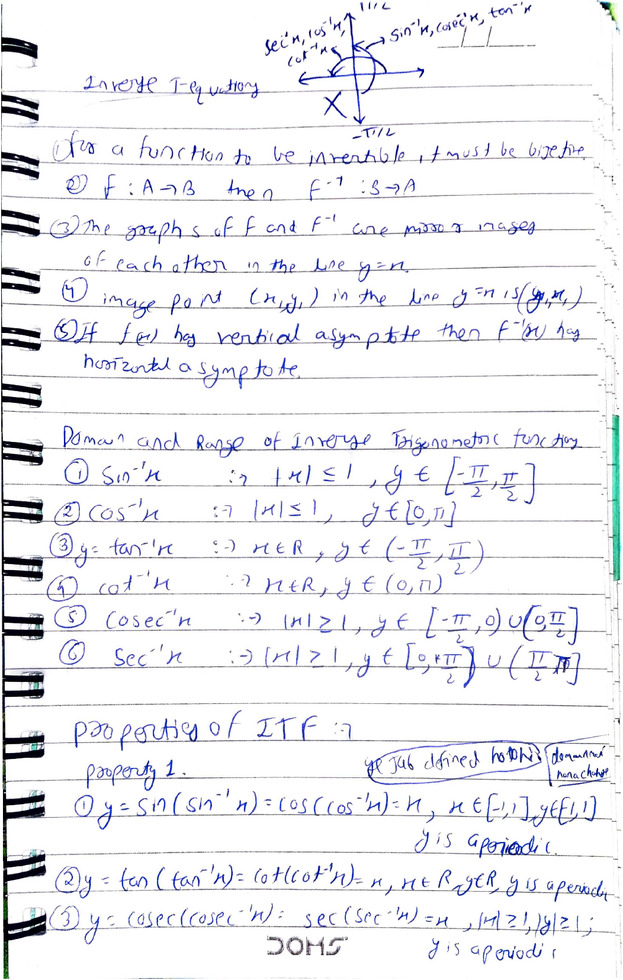 π/2
sec⁻¹x, cos⁻¹x, cot⁻¹x
sin⁻¹x, cosec⁻¹x, tan⁻¹x
Inverse T-equations
X
-π/2
① for a function to be invertible, it must be bijective.
② f : A → B then f⁻¹ : B → A
③ The graphs of f and f⁻¹ are mirror images
of each other in the line y=x.
④ image point (x₁,y₁) in the line y=x is (y₁,x₁)
⑤ If f(x) has vertical asymptote then f⁻¹(x) has
horizontal asymptote.
Domain and Range of Inverse Trigonometric function
① Sin⁻¹x :→ |x| ≤ 1, y ∈ [-π/2, π/2]
② cos⁻¹x :→ |x| ≤ 1, y ∈ [0,π]
③ y= tan⁻¹x :→ x∈R, y ∈ (-π/2, π/2)
④ cot⁻¹x :→ x∈R, y ∈ (0,π)
⑤ cosec⁻¹x :→ |x| ≥ 1, y ∈ [-π/2, 0) ∪ (0, π/2]
⑥ sec⁻¹x :→ |x| ≥ 1, y ∈ [0, π/2) ∪ (π/2, π]
Properties of ITF :→
property 1.
ye jab defined ho
domain
① y = sin(sin⁻¹x) = cos(cos⁻¹x) = x, x∈[-1,1], y∈[-1,1]
y is aperiodic.
② y = tan(tan⁻¹x) = cot(cot⁻¹x) = x, x∈R, y∈R, y is aperiodic
③ y = cosec(cosec⁻¹x) = sec(sec⁻¹x) = x, |x| ≥ 1, |y| ≥ 1;
y is aperiodic
DOMS